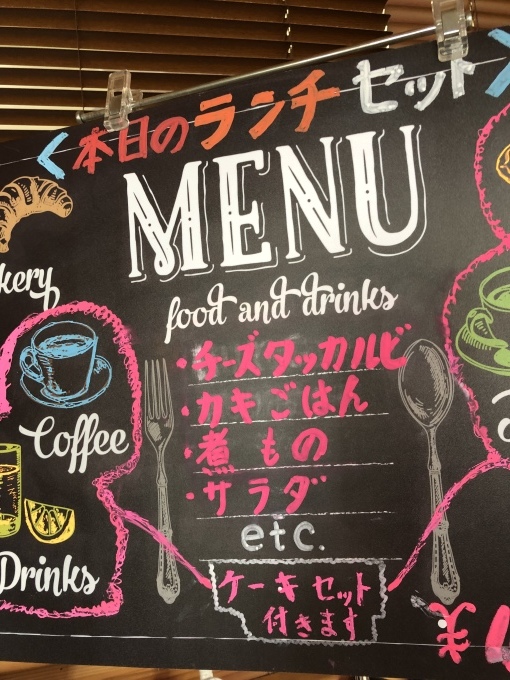 本日のランチセット
MENU
food and drinks
kery
・チーズタッカルビ
・カキごはん
Coffee
・煮もの
・サラダ
etc.
Drinks
ケーキセット
付きます